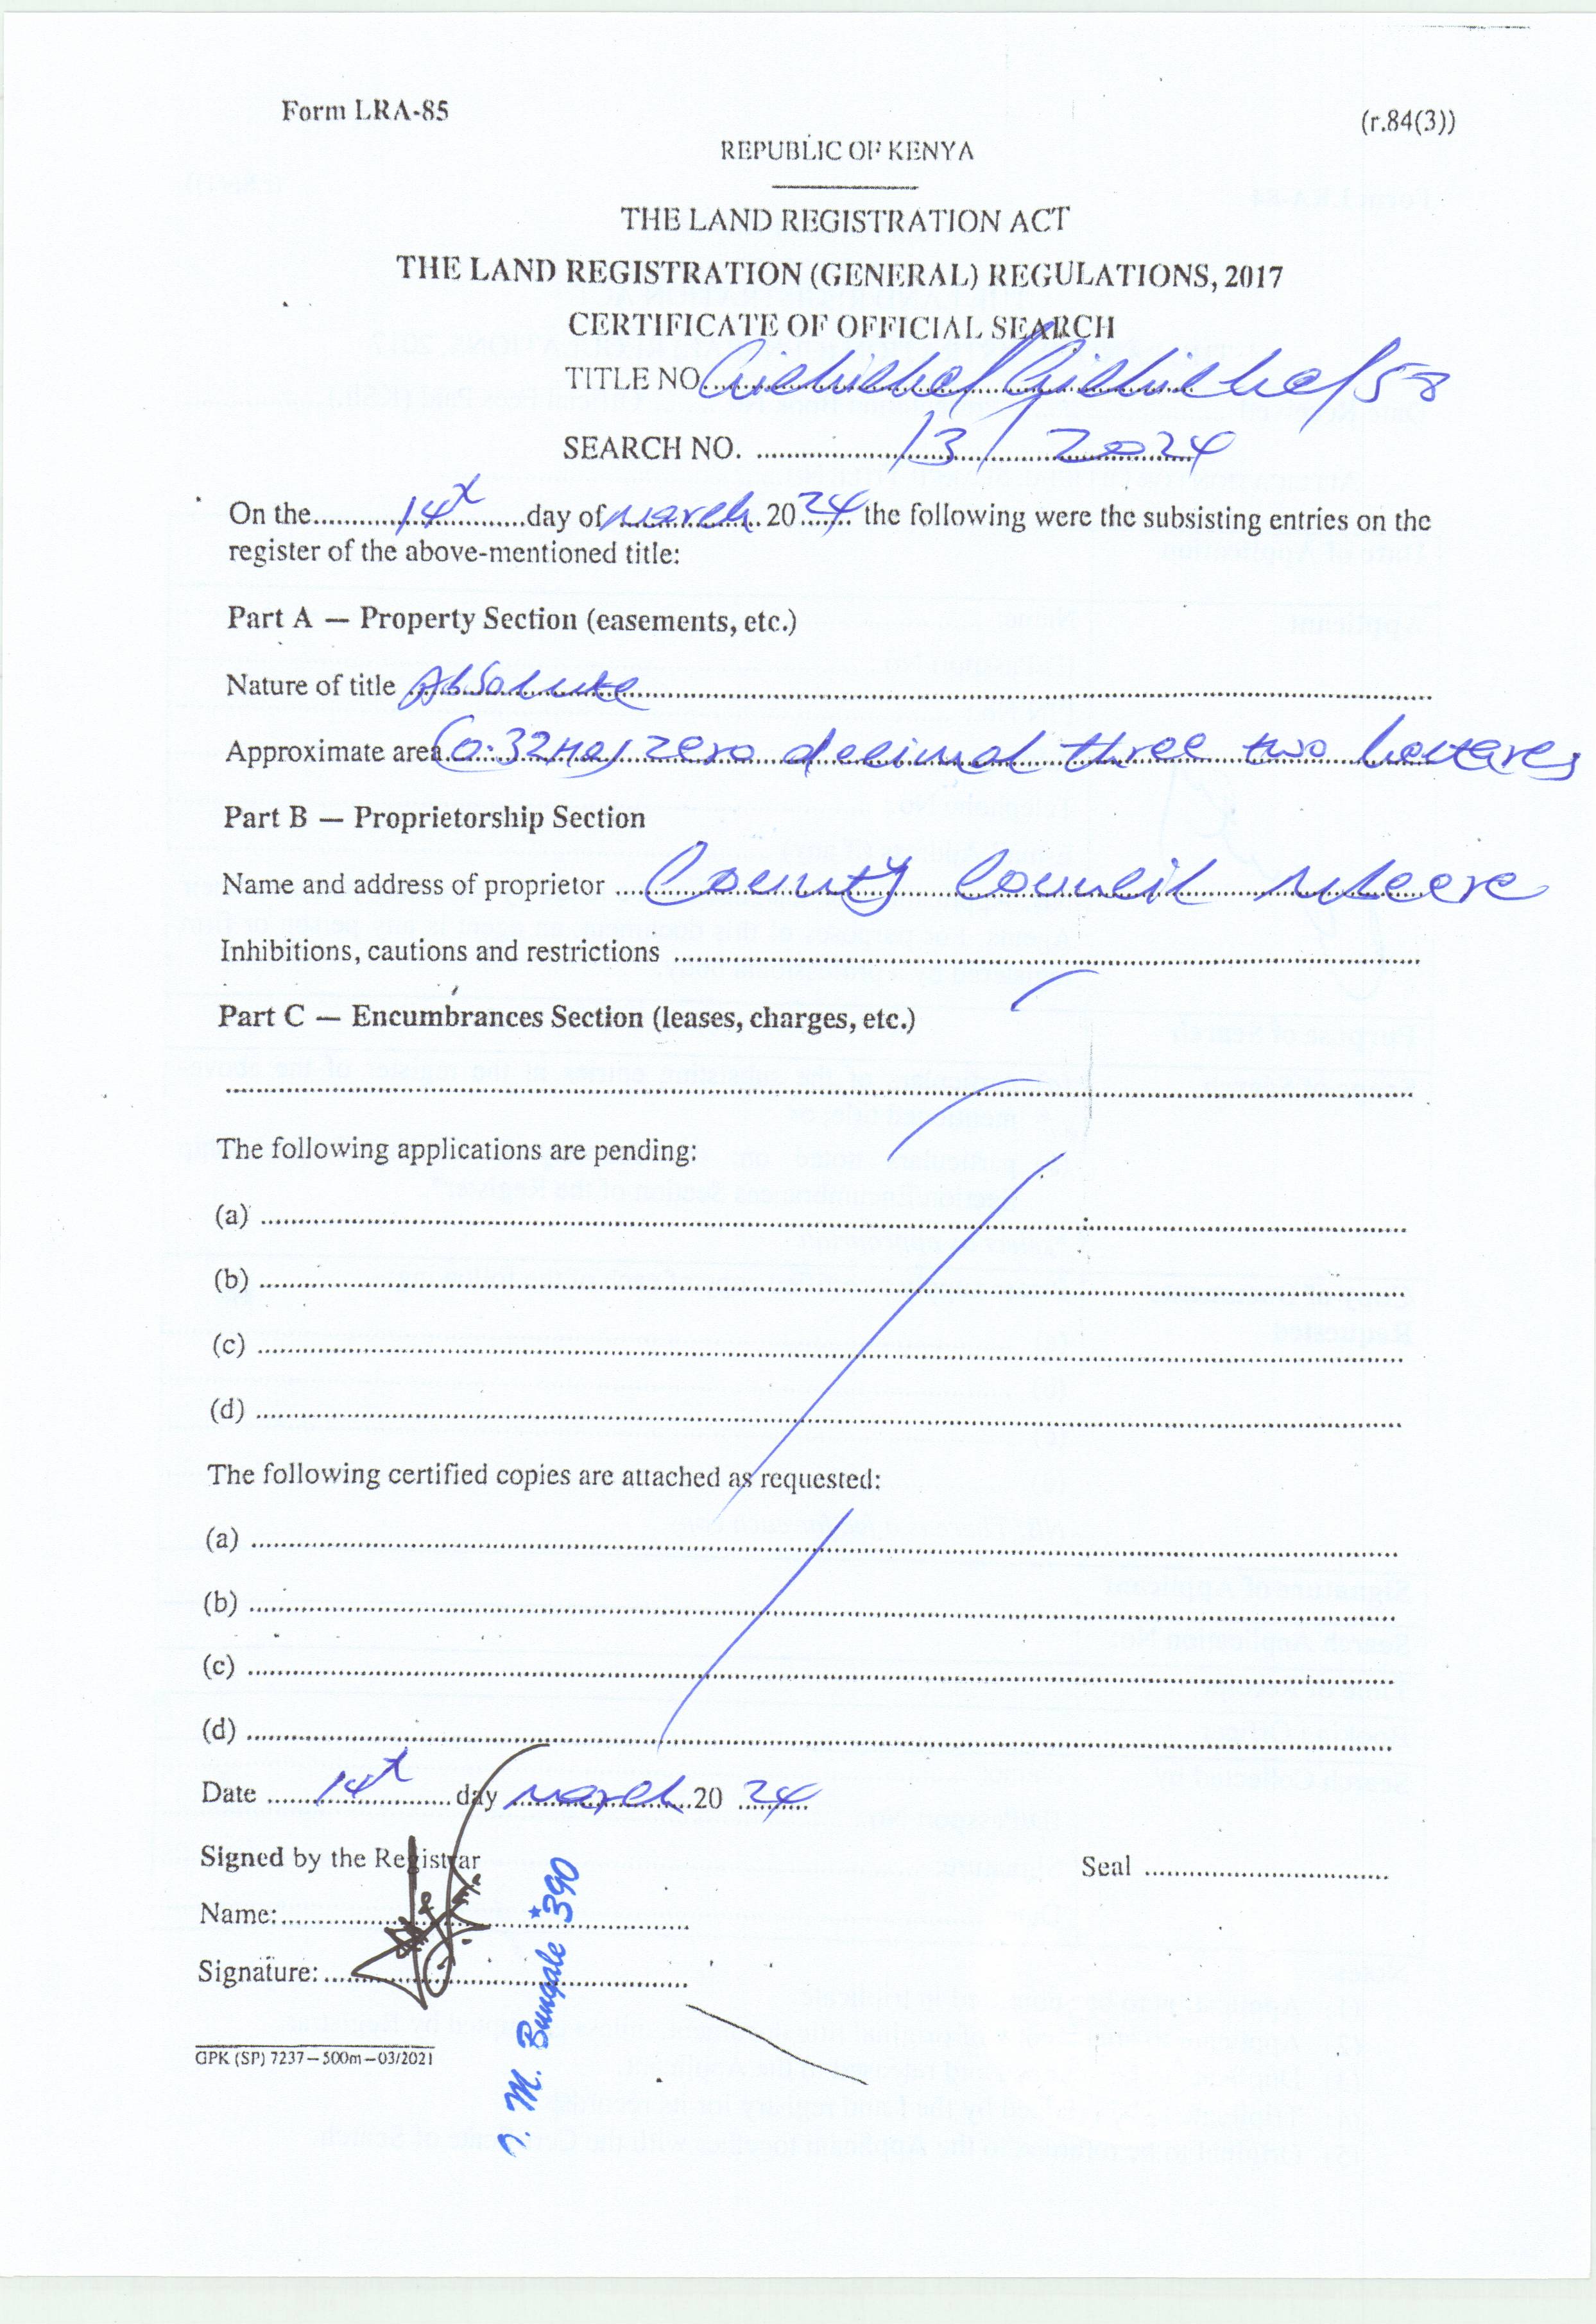 Form LRA-85
(r.84(3))
REPUBLIC OF KENYA
THE LAND REGISTRATION ACT
THE LAND REGISTRATION (GENERAL) REGULATIONS, 2017
CERTIFICATE OF OFFICIAL SEARCH
TITLE NO. /58
SEARCH NO. 13/2024
On the 14th day of march 2024 the following were the subsisting entries on the
register of the above-mentioned title:
Part A — Property Section (easements, etc.)
Nature of title Absolute
Approximate area (0.32Ha) zero decimal three two hectares
Part B — Proprietorship Section
Name and address of proprietor County Council
Inhibitions, cautions and restrictions
Part C — Encumbrances Section (leases, charges, etc.)
The following applications are pending:
(a)
(b)
(c)
(d)
The following certified copies are attached as requested:
(a)
(b)
(c)
(d)
Date 14th day march 20 24
Signed by the Registrar
Seal
Name:
Signature:
M. Bungale *390
GPK (SP) 7237—500m—03/2021